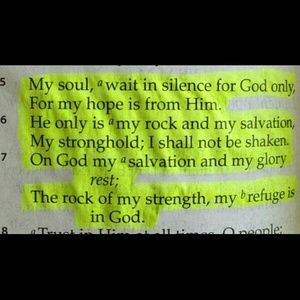 5 My soul, ᵃwait in silence for God only,
For my hope is from Him.
6 He only is ᵃmy rock and my salvation,
My stronghold; I shall not be shaken.
7 On God my ᵃsalvation and my glory
rest;
The rock of my strength, my ᵇrefuge is
in God.
8 ᵃTrust in Him at all times, O people;